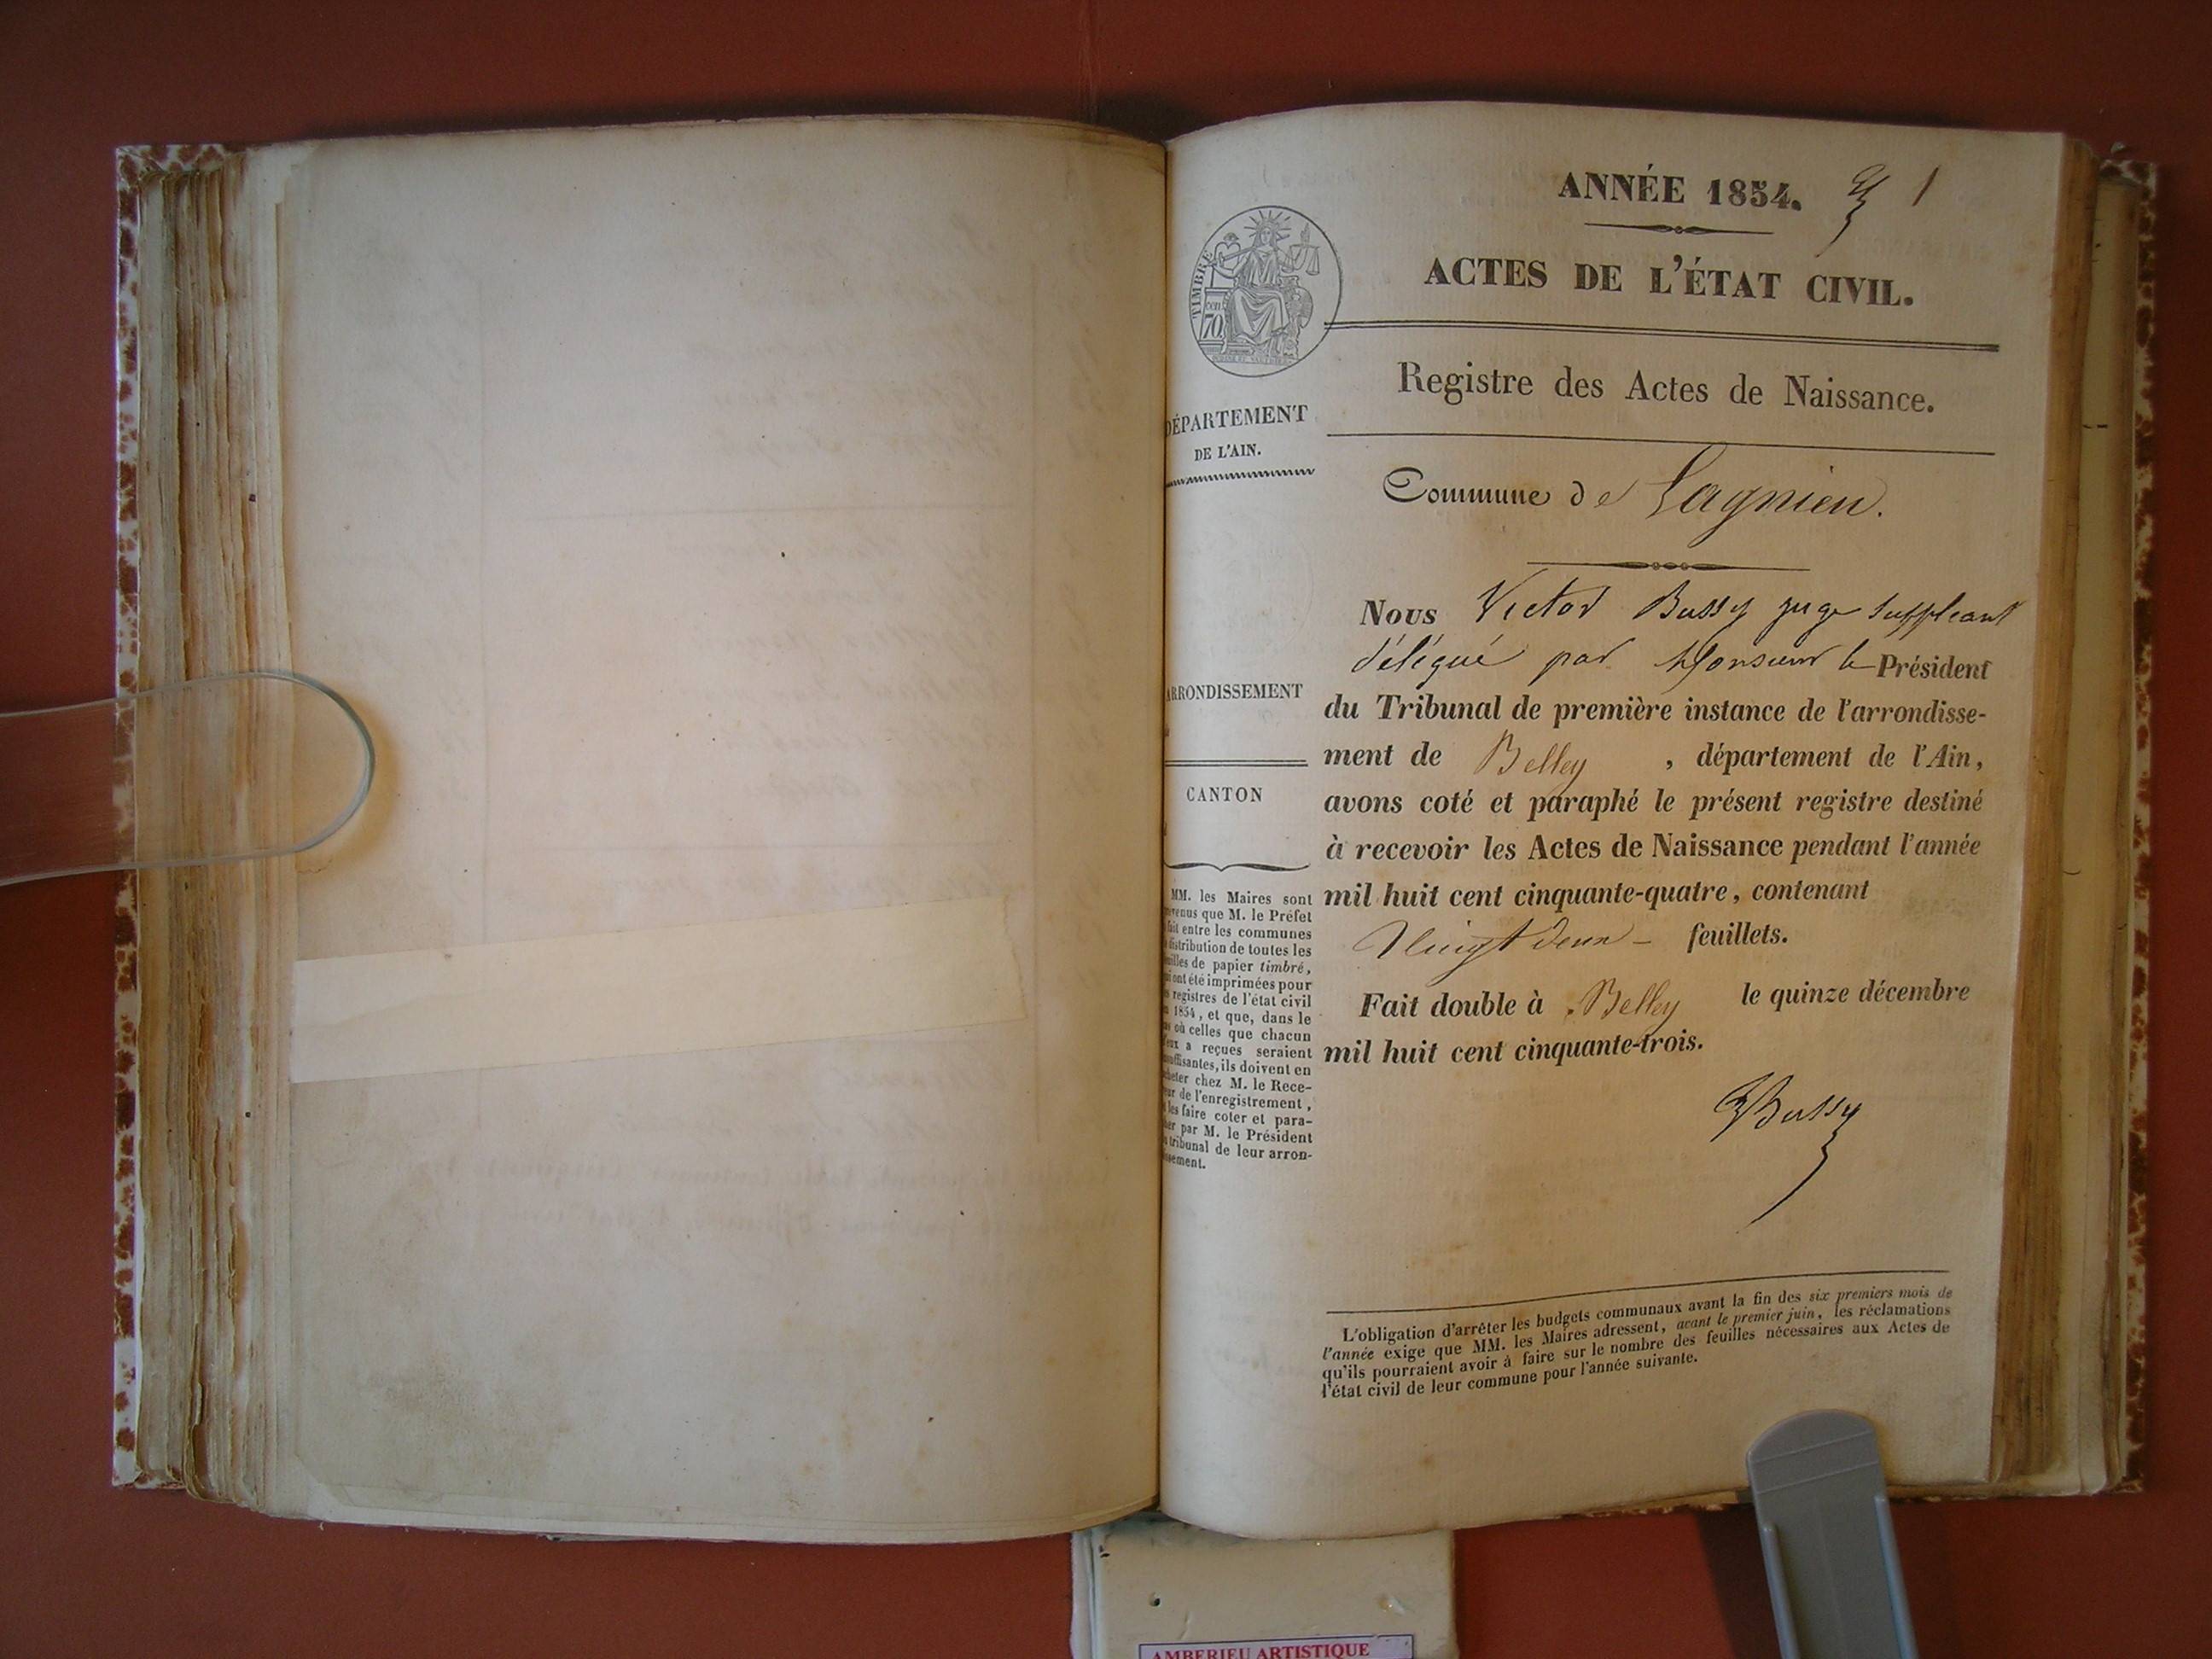 ANNÉE 1854. 1
ACTES DE L'ÉTAT CIVIL.
TIMBRE
cen
70
Registre des Actes de Naissance.
DÉPARTEMENT
DE L'AIN.
Commune de Lagnieu.
Nous Victor Bussy juge suppleant
délégué par Monsieur le Président
du Tribunal de première instance de l'arrondisse-
ment de Belley , département de l'Ain,
avons coté et paraphé le présent registre destiné
à recevoir les Actes de Naissance pendant l'année
mil huit cent cinquante-quatre, contenant
Vingt deux - feuillets.
Fait double à Belley le quinze décembre
mil huit cent cinquante-trois.
Bussy
ARRONDISSEMENT
CANTON
MM. les Maires sont
venus que M. le Préfet
fait entre les communes
distribution de toutes les
uilles de papier timbré,
ui ont été imprimées pour
s registres de l'état civil
1854, et que, dans le
où celles que chacun
eux a reçues seraient
suffisantes, ils doivent en
cheter chez M. le Rece-
eur de l'enregistrement,
les faire coter et para-
her par M. le Président
tribunal de leur arron-
ssement.
L'obligation d'arrêter les budgets communaux avant la fin des six premiers mois de
l'année exige que MM. les Maires adressent, avant le premier juin, les réclamations
qu'ils pourraient avoir à faire sur le nombre des feuilles nécessaires aux Actes de
l'état civil de leur commune pour l'année suivante.
AMBERIEU ARTISTIQUE